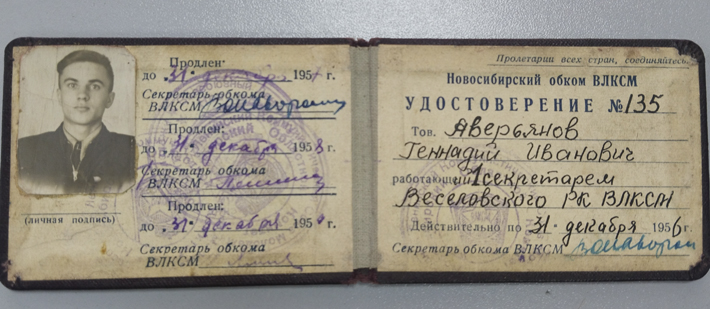 Продлен:
до 31 декабря 195 г.
Секретарь обкома
ВЛКСМ
Продлен:
до 31 декабря 1958 г.
Секретарь обкома
ВЛКСМ
Продлен:
до 31 декабря 195 г.
Секретарь обкома
ВЛКСМ
(личная подпись)
Пролетарии всех стран, соединяйтесь
Новосибирский обком ВЛКСМ
УДОСТОВЕРЕНИЕ №135
Тов. Аверьянов
Геннадий Иванович
работающий 1 секретарем
Веселовского РК ВЛКСМ
Действительно по 31 декабря 1956 г.
Секретарь обкома ВЛКСМ